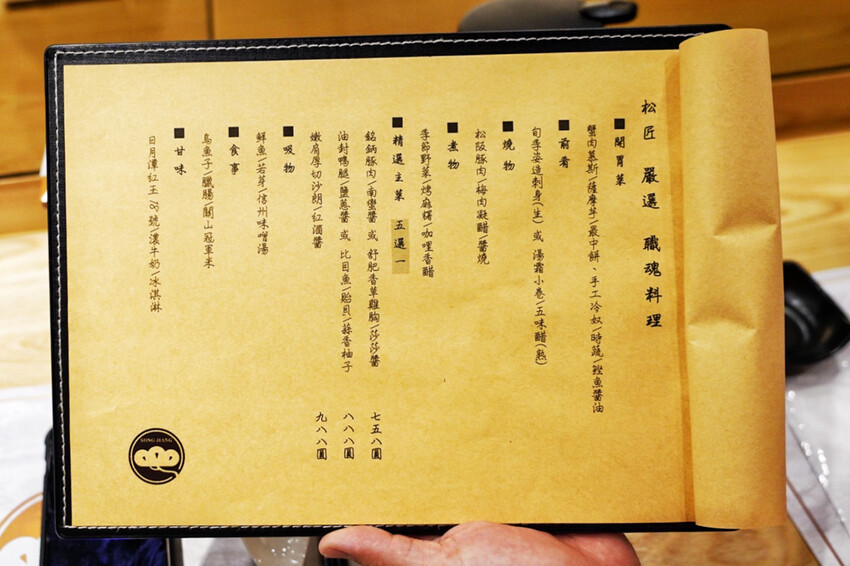 松匠 嚴選 職魂料理
■ 開胃菜
蟹肉慕斯/薩摩芋/最中餅、手工冷奴/時蔬/鰹魚醬油
■ 前肴
旬季姿造刺身(生) 或 湯霜小卷/五味醋(熟)
■ 燒物
松阪豚肉/梅肉凝醋/醬燒
■ 煮物
季節野菜烤麻糬/咖哩香醋
■ 精選主菜 五選一
銘柄豚肉/南蠻醬 或 舒肥香草雞胸/莎莎醬 七五八圓
油封鴨腿/鹽蔥醬 或 比目魚/貽貝/蒜香柚子 八八八圓
嫩肩厚切沙朗/紅酒醬 九八八圓
■ 吸物
鮮魚/若芽/信州味噌湯
■ 食事
烏魚子/臘腸/關山冠軍米
■ 甘味
日月潭紅玉18號/濃牛奶/冰淇淋
SONG JIANG